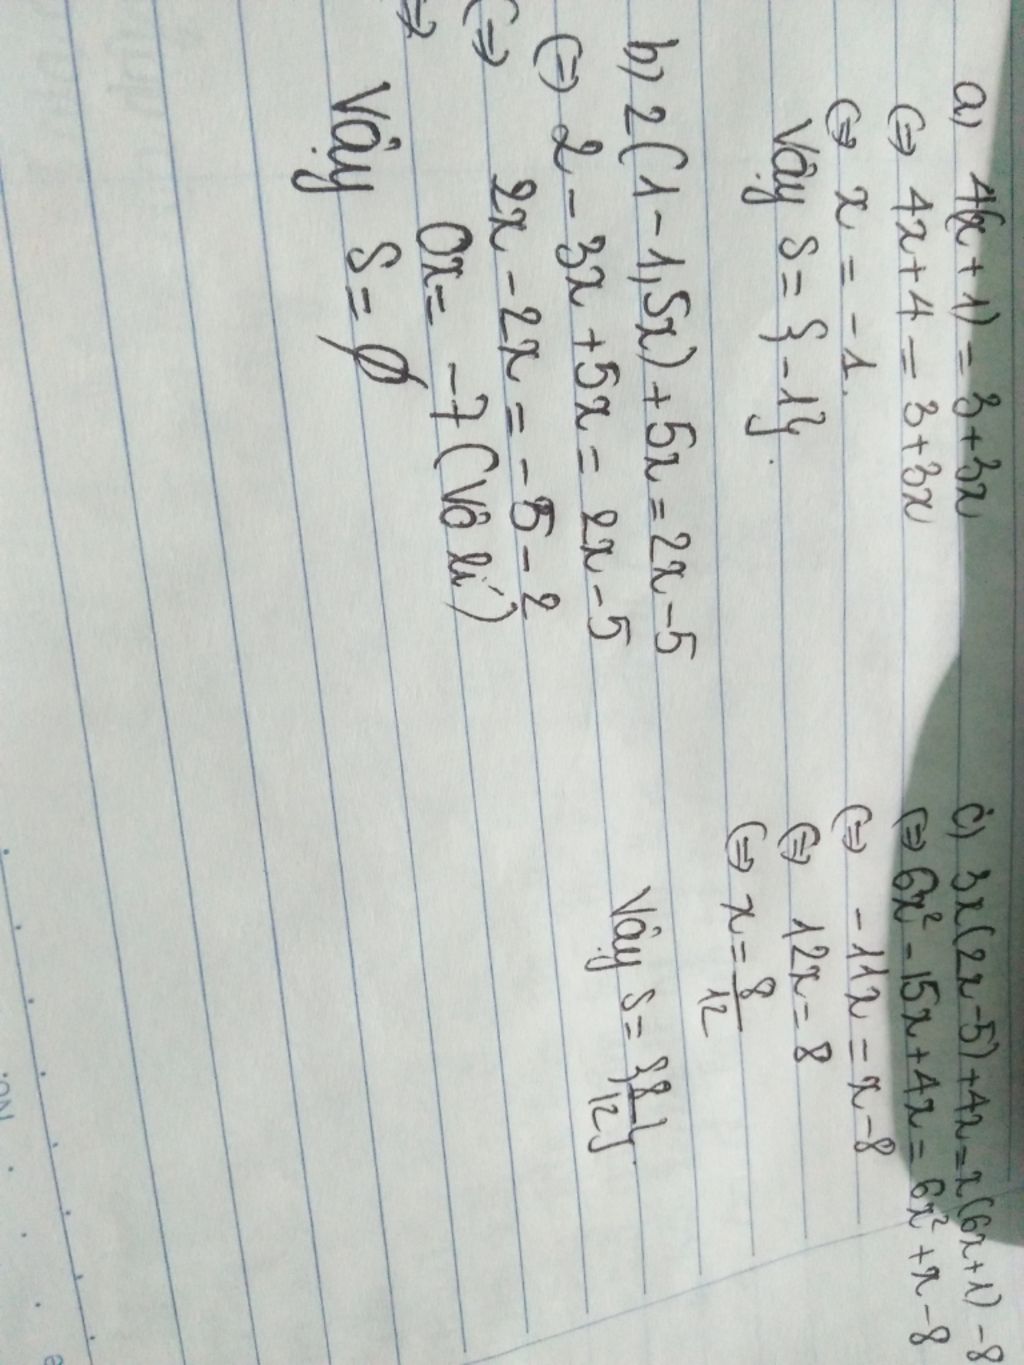 a) 4(x+1) = 3+3x
(=) 4x+4 = 3+3x
(=) x = -1.
Vậy S = {-1}.
b) 2(1-1,5x)+5x = 2x-5
(=) 2-3x+5x = 2x-5
(=) 2x-2x = -5-2
=) 0x = -7 (Vô lí)
Vậy S = ∅
c) 3x(2x-5)+4x = x(6x+1)-8
(=) 6x²-15x+4x = 6x²+x-8
(=) -11x = x-8
(=) 12x = 8
(=) x = 8/12
Vậy S = {8/12}.
No.